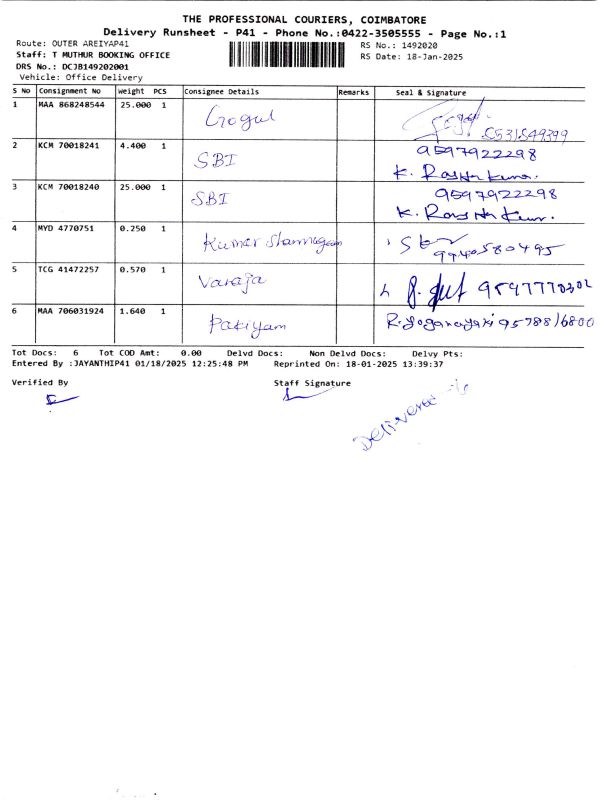 THE PROFESSIONAL COURIERS, COIMBATORE
Delivery Runsheet - P41 - Phone No.:0422-3505555 - Page No.:1
Route: OUTER AREIYAP41
RS No.: 1492020
Staff: T MUTHUR BOOKING OFFICE
RS Date: 18-Jan-2025
DRS No.: DCJB149202001
Vehicle: Office Delivery
S No Consignment No Weight PCS Consignee Details Remarks Seal & Signature
1 MAA 868248544 25.000 1 Gogul
2 KCM 70018241 4.400 1 SBI 9597922298
3 KCM 70018240 25.000 1 SBI 9597922298
4 MYD 4770751 0.250 1 Kumar Shanmugam 9940580495
5 TCG 41472257 0.570 1 Varaja
6 MAA 706031924 1.640 1 Pakiyam R. Yoganayaki 9578816800
Tot Docs: 6 Tot COD Amt: 0.00 Delvd Docs: Non Delvd Docs: Delvy Pts:
Entered By :JAYANTHIP41 01/18/2025 12:25:48 PM Reprinted On: 18-01-2025 13:39:37
Verified By Staff Signature